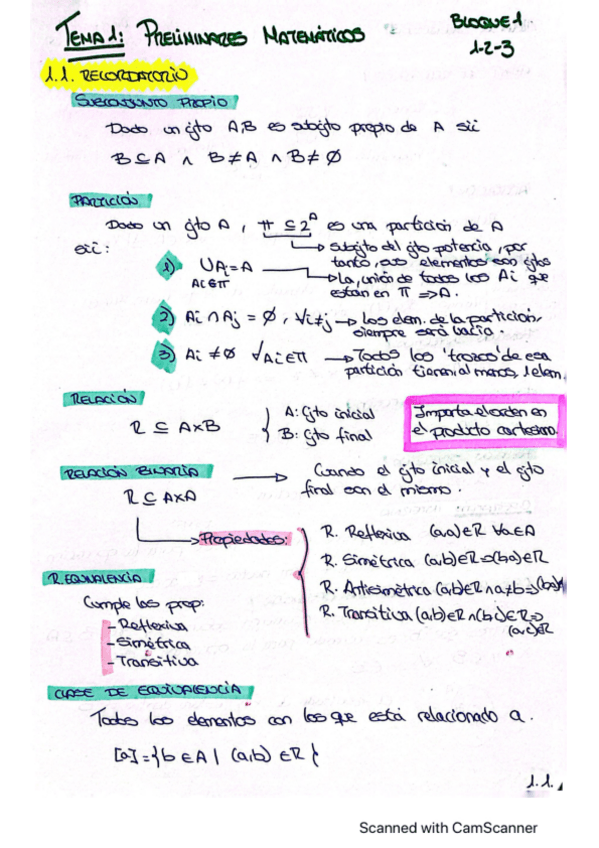 TEMA 1: PRELIMINARES MATEMÁTICOS
BLOQUE 1
1-2-3
1.1. RECORDATORIO
SUBCONJUNTO PROPIO
Dado un cjto A, B es subcjto propio de A sii
B ⊆ A ∧ B ≠ A ∧ B ≠ ∅
PARTICIÓN
Dado un cjto A, π ⊆ 2^A es una partición de A
sii:
subcjto del cjto potencia, por
tanto, sus elementos son cjtos
1) ∪Ai = A
Ai∈π
La unión de todos los Ai que
están en π ⇒ A.
2) Ai ∩ Aj = ∅, ∀i≠j → los elem. de la partición,
siempre será vacía.
3) Ai ≠ ∅ ∀Ai∈π → Todos los 'trozos' de esa
partición tienen al menos 1 elem
RELACIÓN
R ⊆ A×B
A: Cjto inicial
B: Cjto final
Importa el orden en
el producto cartesiano.
RELACIÓN BINARIA
Cuando el cjto inicial y el cjto
final son el mismo.
R ⊆ A×A
Propiedades:
R. Reflexiva (a,a)∈R ∀a∈A
R. Simétrica (a,b)∈R⇒(b,a)∈R
R. Antisimétrica (a,b)∈R ∧ a≠b⇒(b,a)∉
R. Transitiva (a,b)∈R ∧ (b,c)∈R⇒
(a,c)∈R
R. EQUIVALENCIA
Cumple las prop:
- Reflexiva
- Simétrica
- Transitiva
CLASE DE EQUIVALENCIA
Todos los elementos con los que está relacionado a.
[a]={b ∈ A | (a,b) ∈ R}
1.1.
Scanned with CamScanner